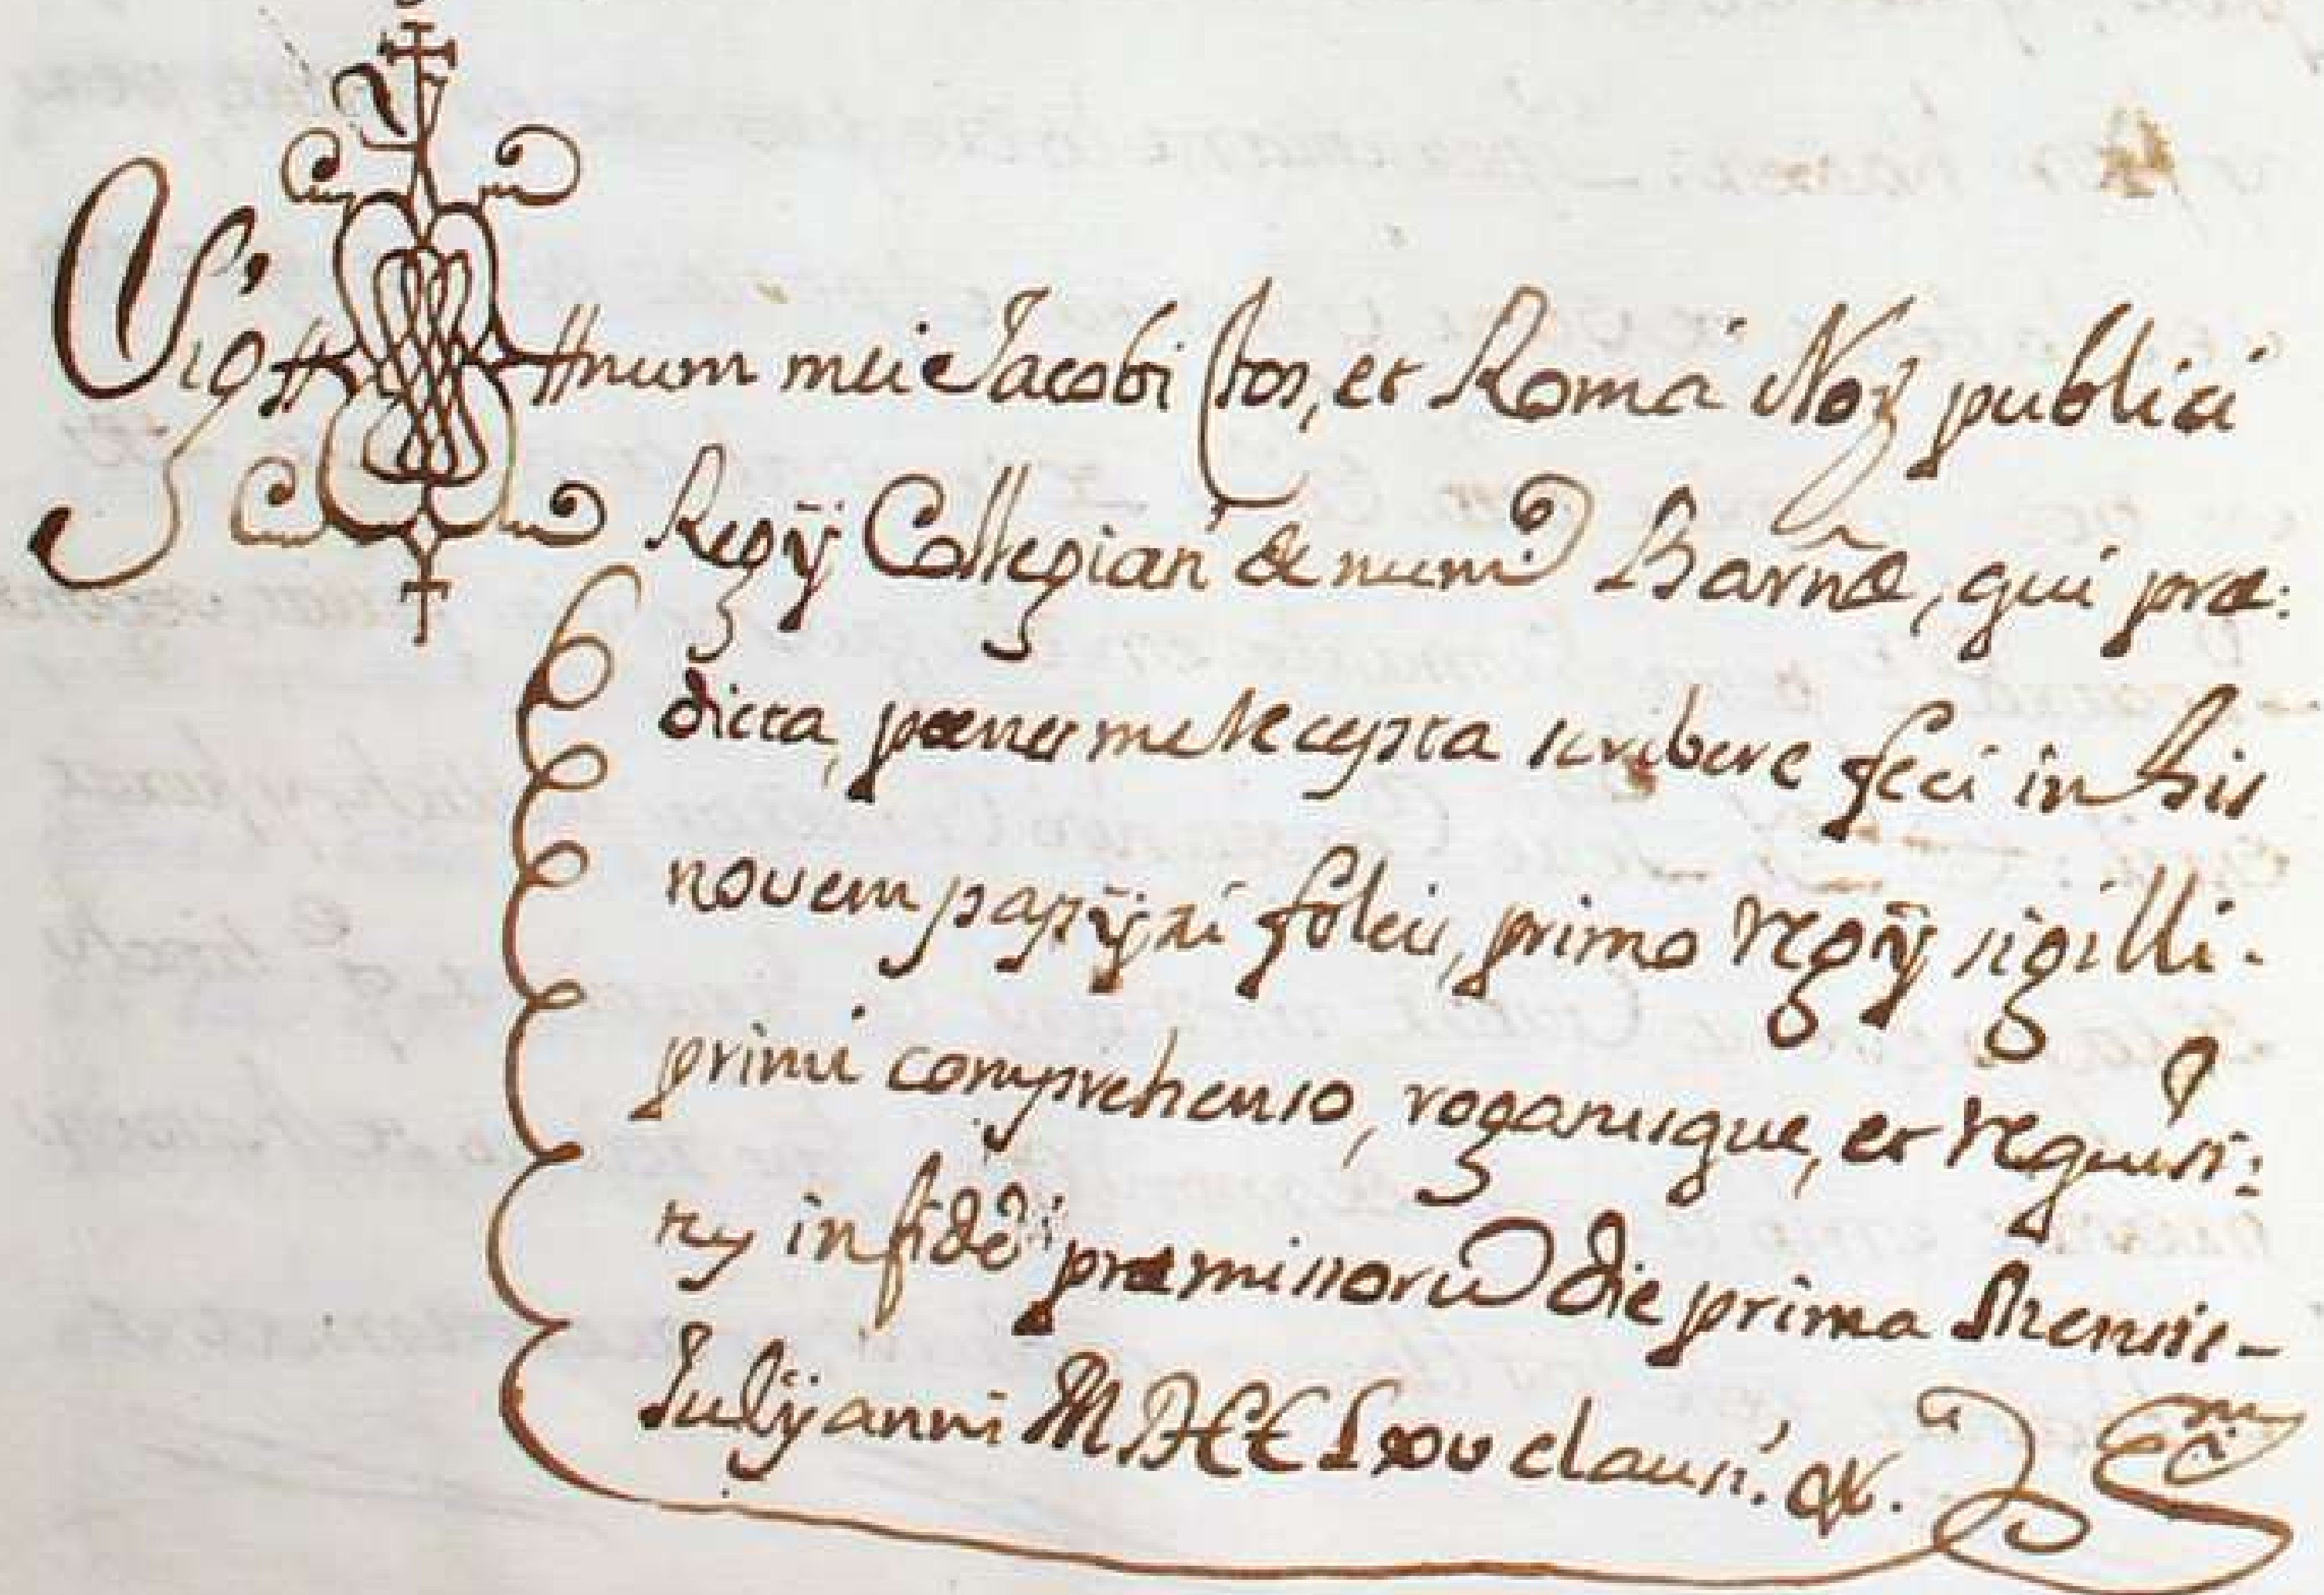 Sig num mei Jacobi Tos, et Romà Noȳ publici
Regÿ Collegian de num.º Barñæ, qui præ:
dicta, pænes me Recepta scribere feci in his
novem papÿri foleis, primo regÿ sigilli.
primi comprehenso, rogatusque, et requisi:
tus in fidẽ præmissorũ die prima Mensis-
Julÿ anni MDCCLxxv clausi. &.